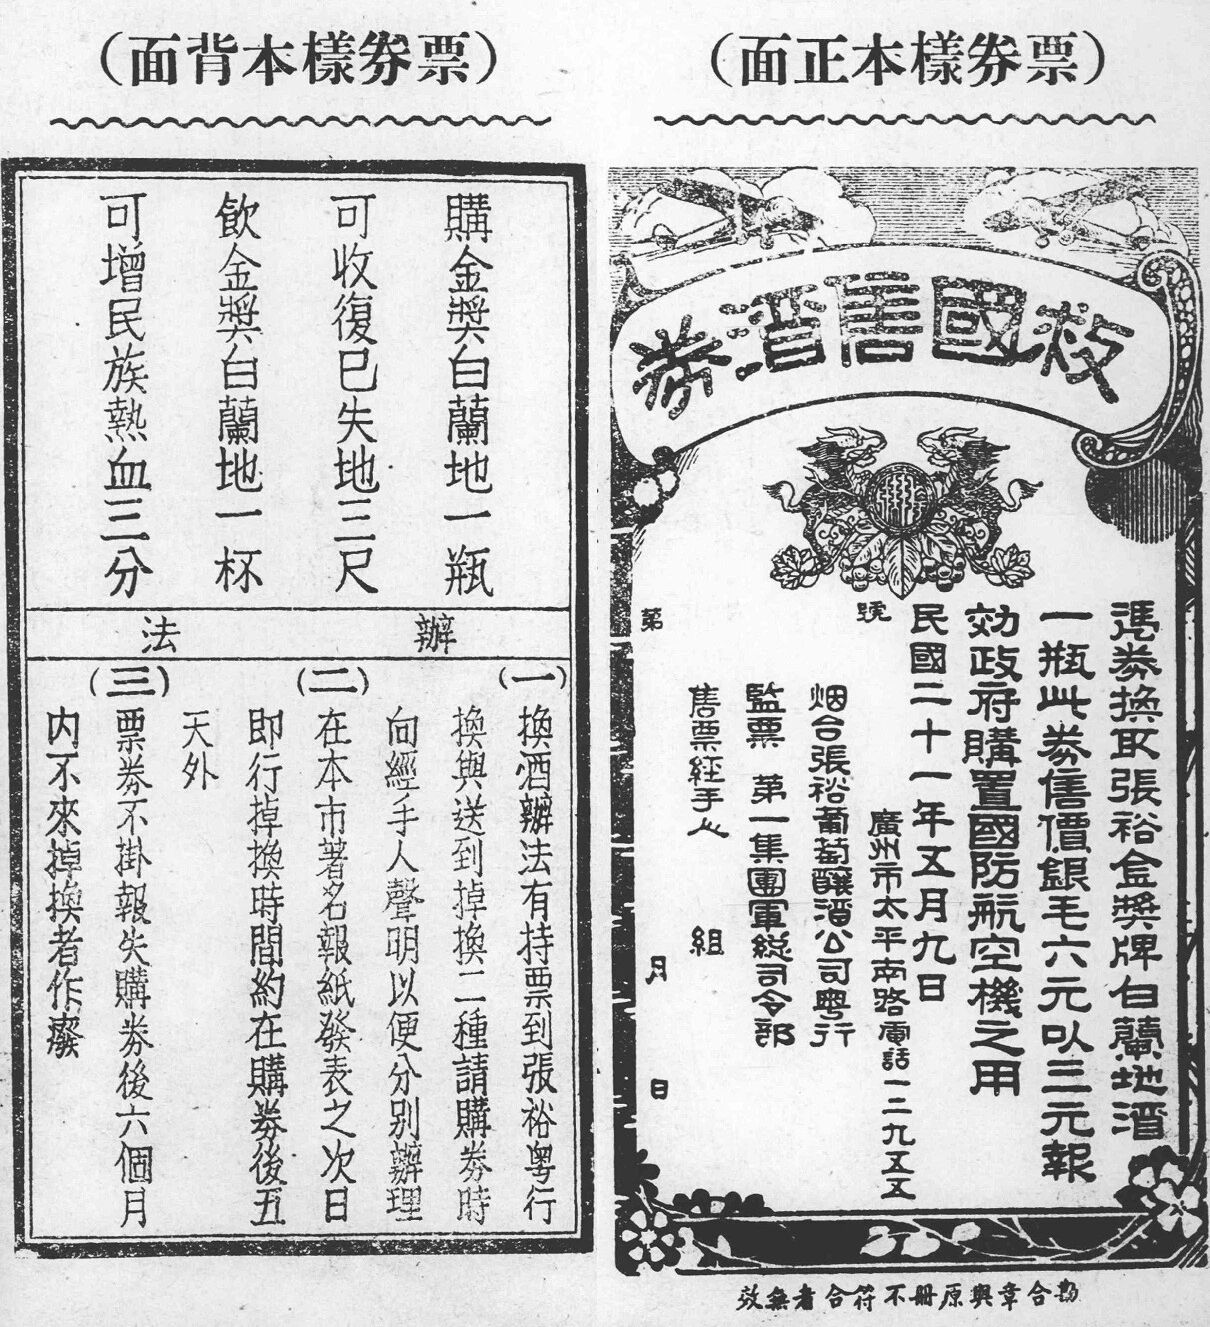 （票券樣本正面）
救國售酒券
憑券換取張裕金獎牌白蘭地酒
一瓶此券售價銀毛六元以三元報
効政府購置國防航空機之用
民國二十一年五月九日
廣州市太平南路電話一二九五五
烟台張裕葡萄釀酒公司粵行
監票　第一集團軍総司令部
售票経手人　組
第　號
月　日
勘合章與原冊不符合者無效
（票券樣本背面）
購金獎白蘭地一瓶
可收復已失地三尺
飲金獎白蘭地一杯
可增民族熱血三分
辦法
（一）
換酒辦法有持票到張裕粵行
換與送到掉換二種請購券時
向經手人聲明以便分別辦理
（二）
在本市著名報紙發表之次日
即行掉換時間約在購券後五
天外
（三）
票券不掛報失購券後六個月
内不來掉換者作廢